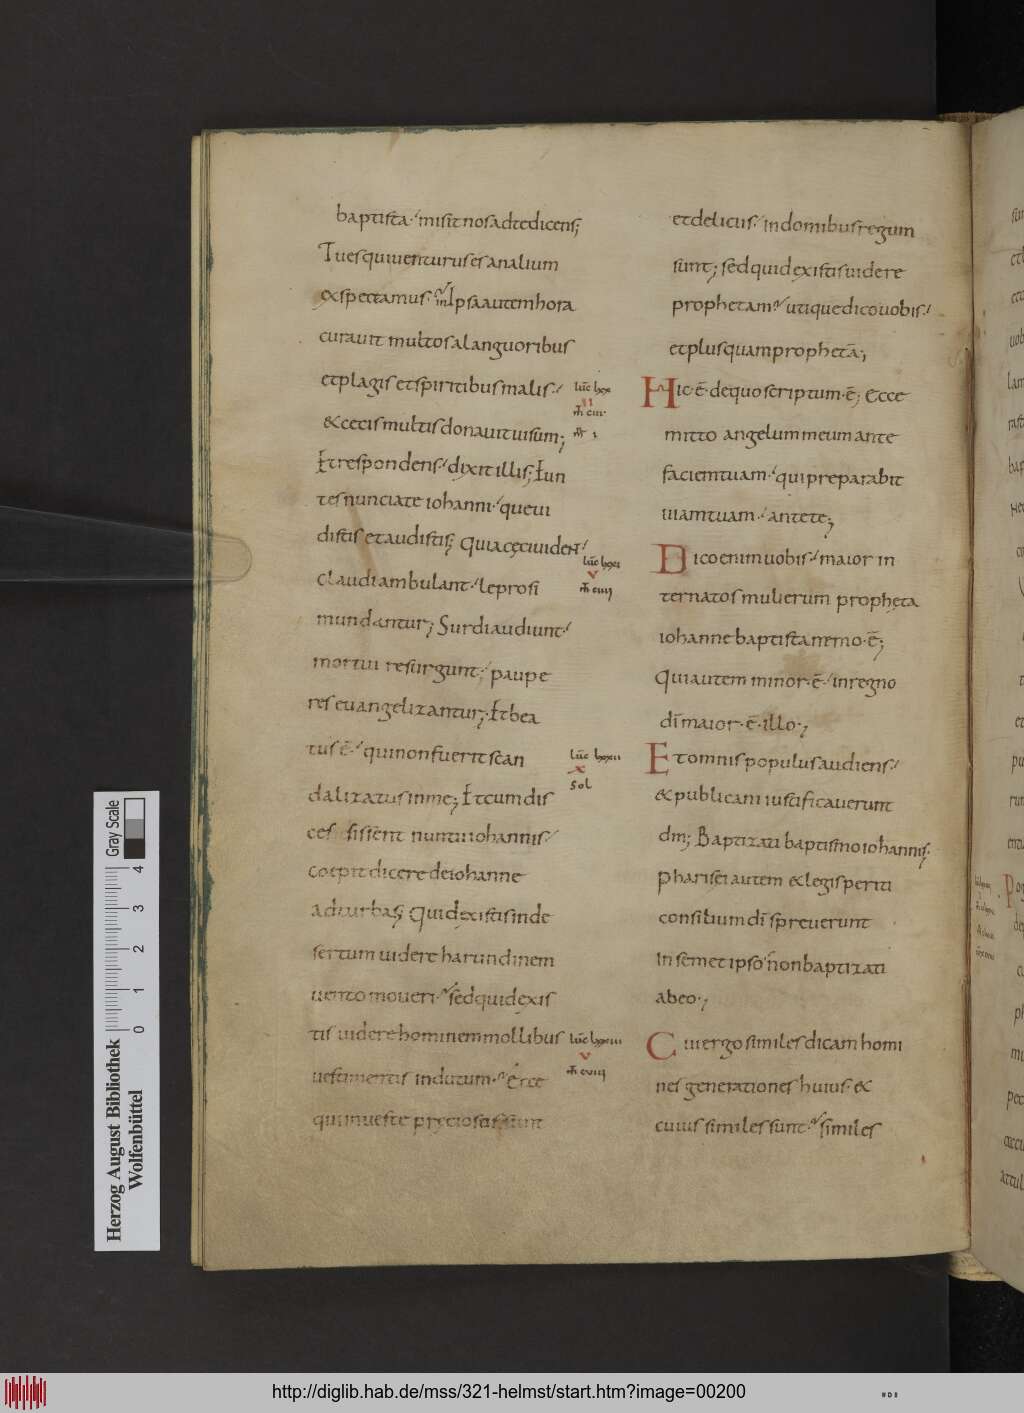 baptista· misit nos ad te dicens;
Tu es qui uenturus es an alium
exspectamus· in Ipsa autem hora
curauit multos a languoribus
et plagis et spiritibus malis·
& cecis multis donauit uisum;
Et respondens· dixit illis; Eun
tes nunciate iohanni· que ui
distis et audistis; Quia cęci uident·
Claudi ambulant· leprosi
mundantur; Surdi audiunt·
mortui resurgunt· paupe
res euangelizantur; Et bea
tus ē· qui non fuerit scan
dalizatus in me; Et cum dis
cessissent nuntii iohannis·
coepit dicere de iohanne
ad turbas; Quid existis in de
sertum uidere harundinem
uento moueri· sed quid exis
tis uidere hominem mollibus
uestimentis indutum· Ecce
qui in ueste preciosa sunt
luc̄ lxx
m̄ ciii
mr̄ i
luc̄ lxxi
m̄ ciiij
luc̄ lxxii
x
Sol
luc̄ lxxiii
v
m̄ cviij
et deliciis· in domibus regum
sunt; sed quid existis uidere
prophetam· utique dico uobis·
et plus quam prophetā;
Hic· ē· de quo scriptum· ē; Ecce
mitto angelum meum ante
faciem tuam· qui preparabit
uiam tuam· ante te;
Dico enim uobis· maior in
ter natos mulierum propheta
iohanne baptista nemo· ē;
Qui autem minor· ē· in regno
dī maior· ē· illo·;
Et omnis populus audiens·
& publicani iustificauerunt
dm̄; Baptizati baptismo iohannis·
Pharisei autem & legis periti
consilium dī spreuerunt
In semet ipsos non baptizati
ab eo·;
Cui ergo similes dicam homi
nes generationes huius· &
cui us similes sunt· similes
Herzog August Bibliothek
Wolfenbüttel
0 1 2 3 4
Gray Scale
http://diglib.hab.de/mss/321-helmst/start.htm?image=00200